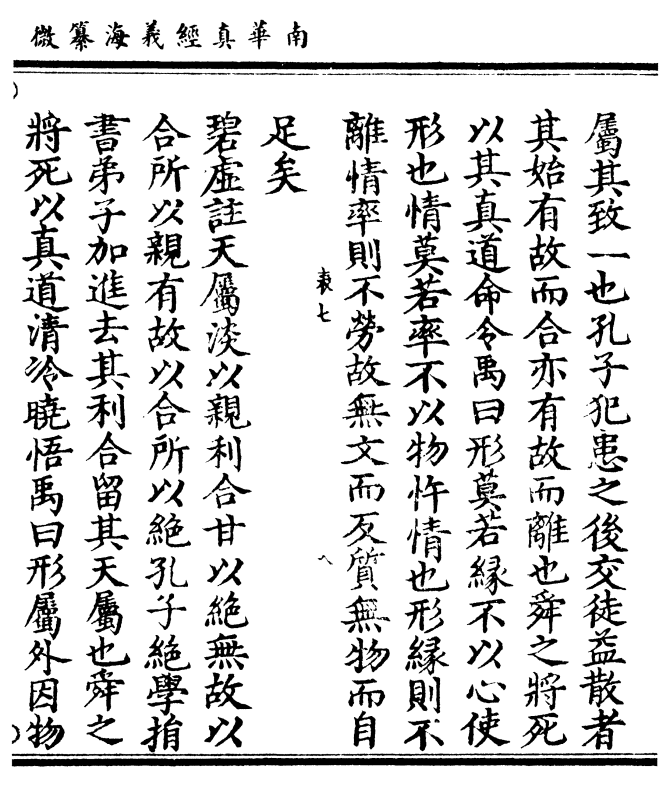 南華真經義海纂微
屬其致一也孔子犯患之後交徒益散者
其始有故而合亦有故而離也舜之將死
以其真道命令禹曰形莫若緣不以心使
形也情莫若率不以物忤情也形緣則不
離情率則不勞故無文而反質無物而自
足矣
表七
碧虛註天屬淡以親利合甘以絕無故以
合所以親有故以合所以絕孔子絕學捐
書弟子加進去其利合留其天屬也舜之
將死以真道清冷曉悟禹曰形屬外因物